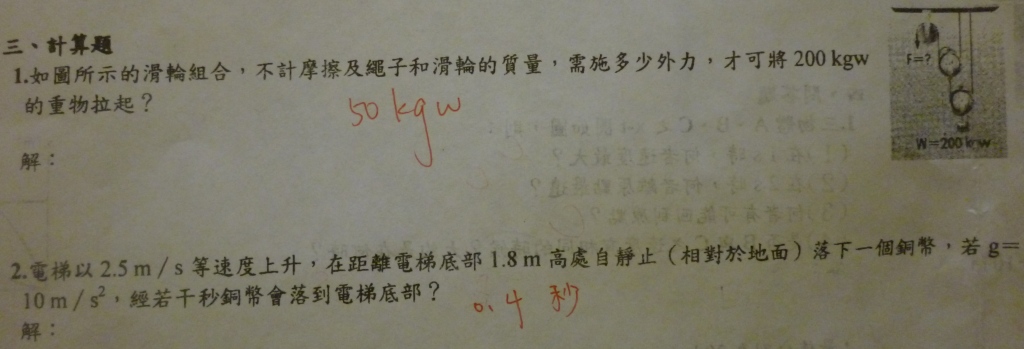 三、計算題
1.如圖所示的滑輪組合，不計摩擦及繩子和滑輪的質量，需施多少外力，才可將 200 kgw
F=?
的重物拉起？
50 kgw
W=200 kgw
解：
2.電梯以 2.5 m / s 等速度上升，在距離電梯底部 1.8 m 高處自靜止（相對於地面）落下一個銅幣，若 g=
10 m / s²，經若干秒銅幣會落到電梯底部？
0.4 秒
解：